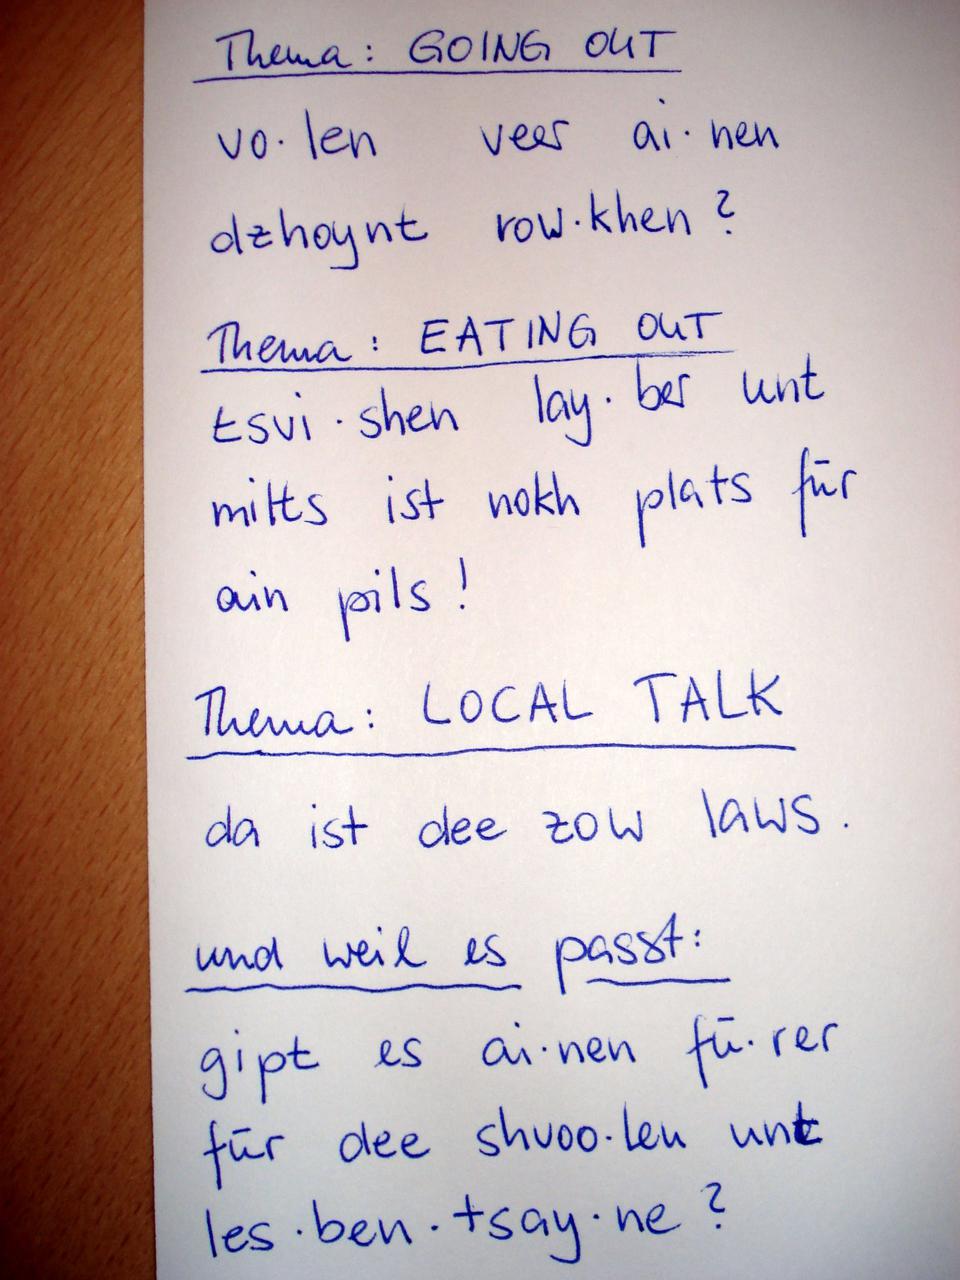 Thema: GOING OUT
vo·len veer ai·nen
dzhoynt row·khen?
Thema: EATING OUT
tsvi·shen lay·ber unt
milts ist nokh plats für
ain pils!
Thema: LOCAL TALK
da ist dee zow laws.
und weil es passt:
gipt es ai·nen fū·rer
fūr dee shvoo·len unt
les·ben·tsay·ne?